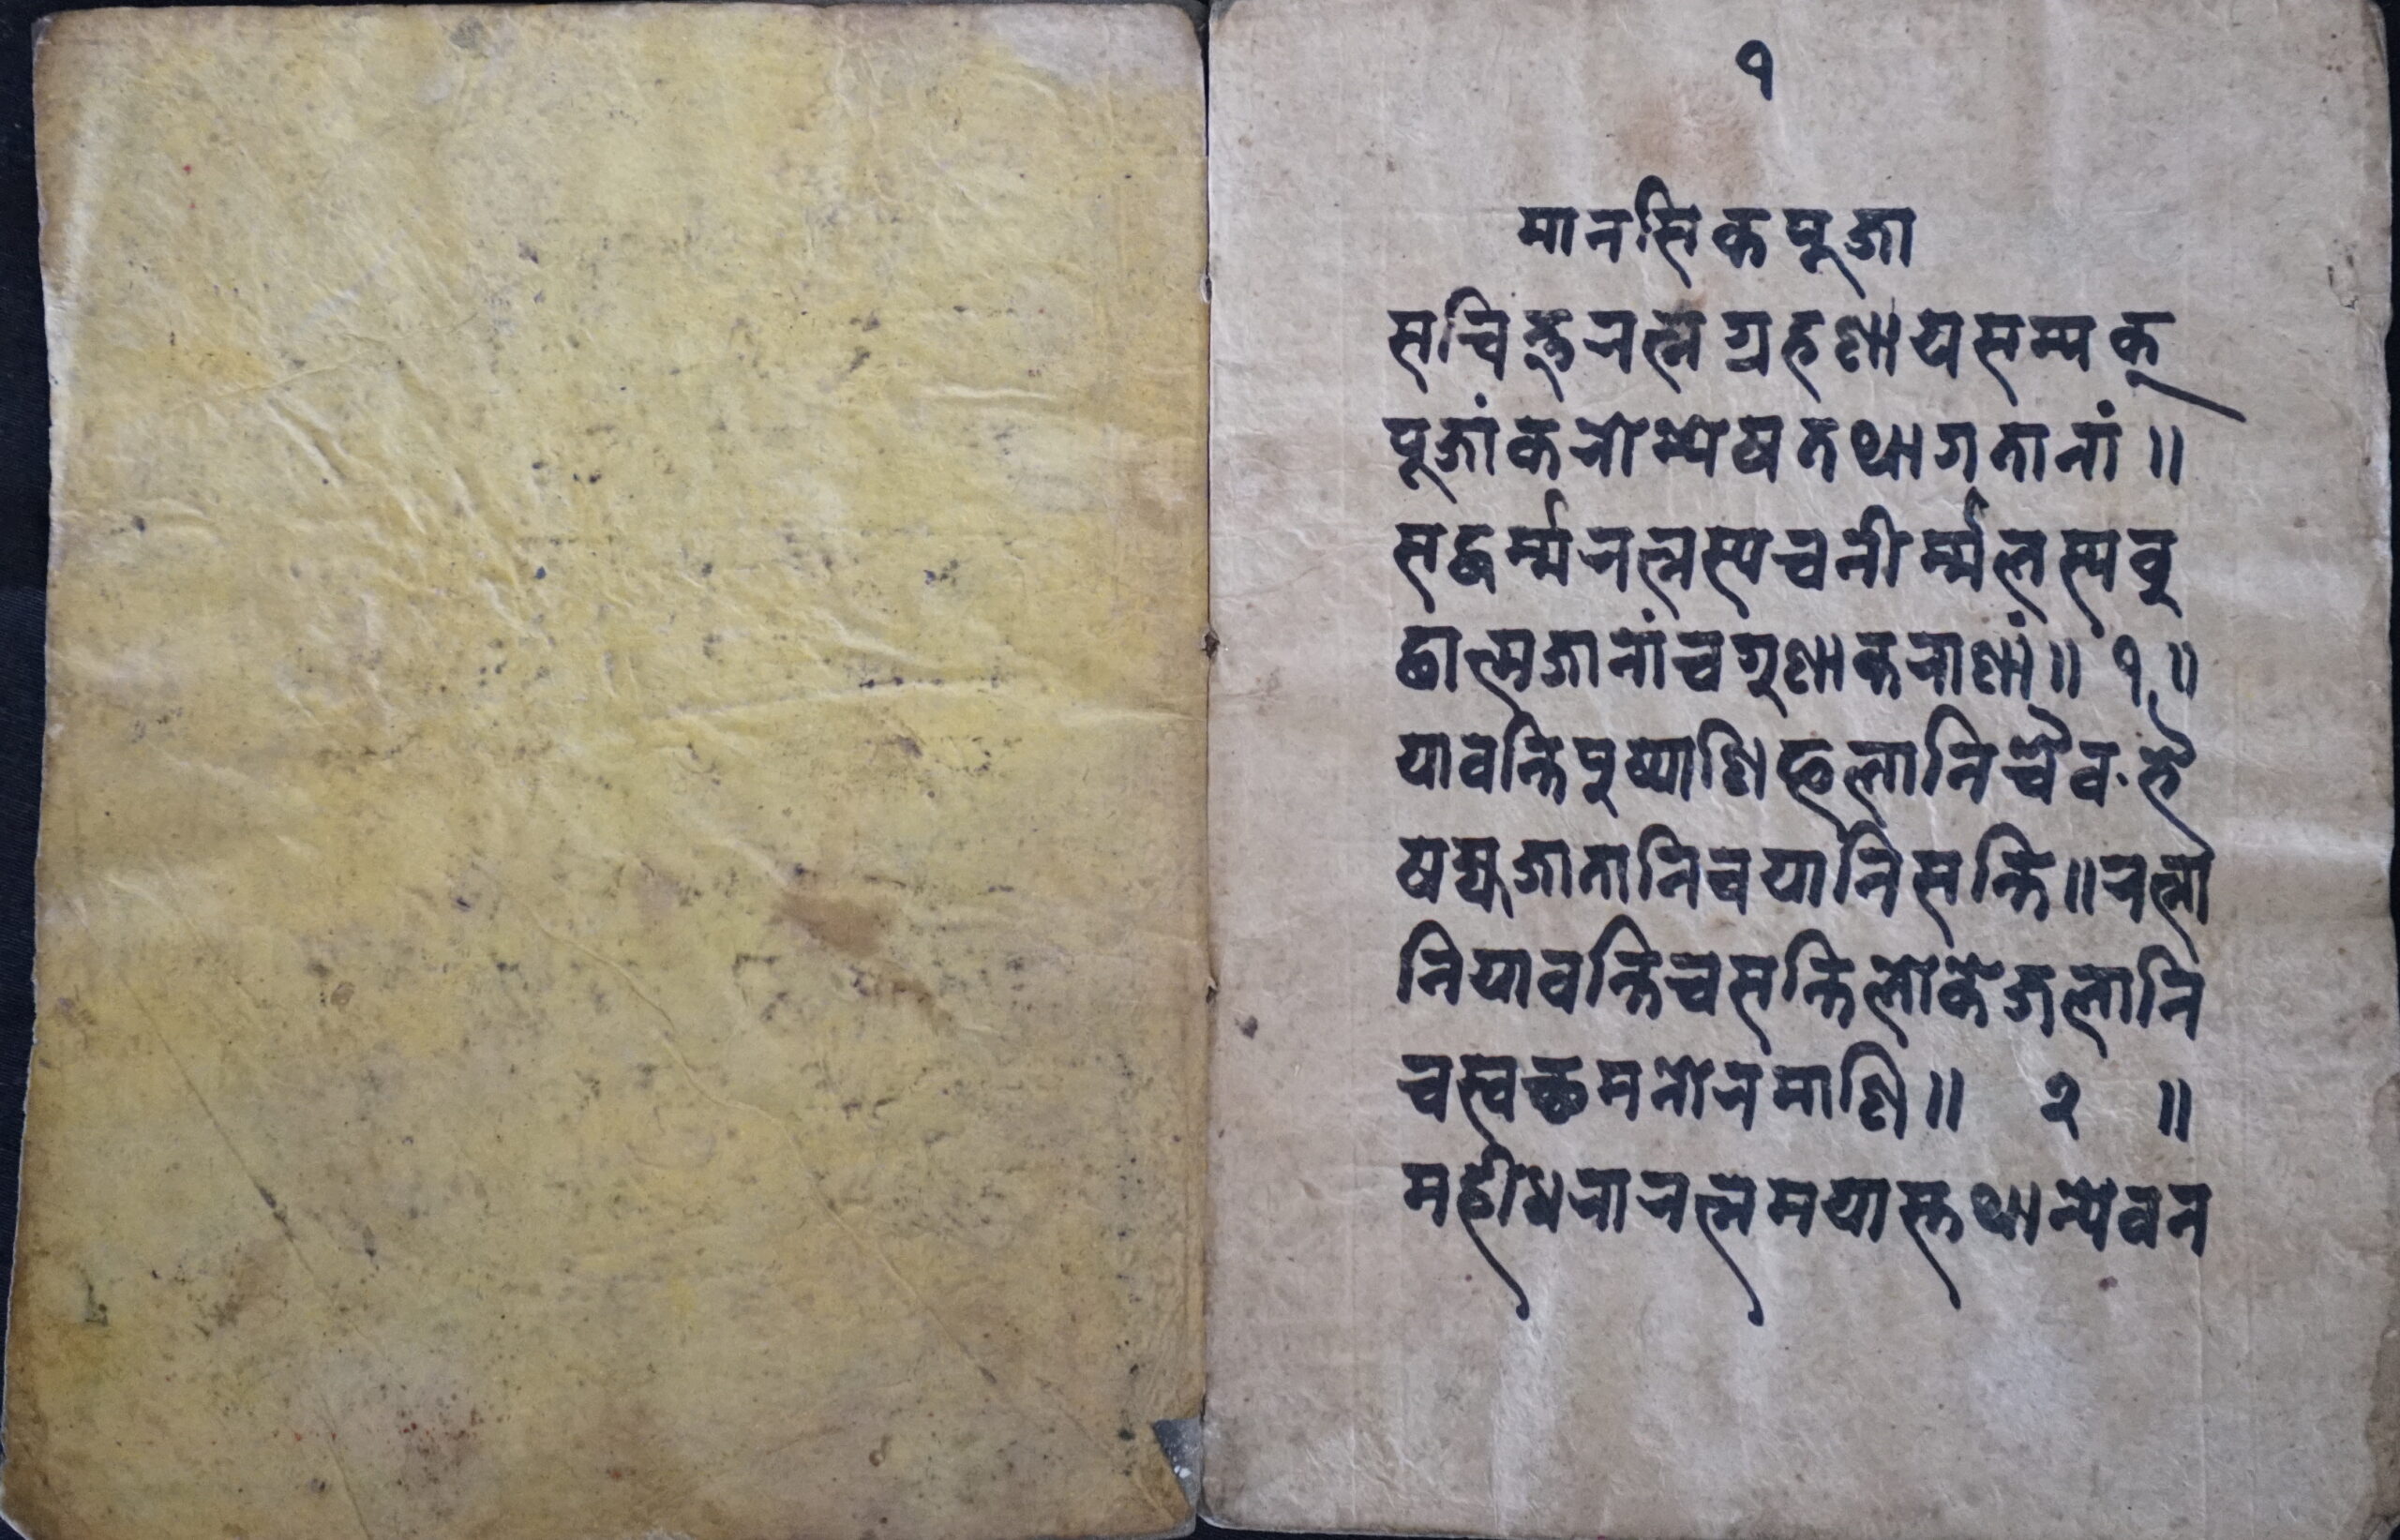 १
मानसिकपूजा
सचित्तरत्नग्रहणायसम्यक्
पूजांकरोम्येषतथागतानां॥
सद्धर्म्मरत्नस्यचनीर्म्मलस्यबु
द्धात्मजानांचगुणाकराणां॥ १ ॥
यावन्तिपुष्पाणिफलानिचैव.भै
षज्यजातानिचयानिसन्ति॥रत्ना
नियावन्तिचसन्तिलोकेजलानि
चस्वच्छमनोरमाणि॥ २ ॥
महीधरारत्नमयास्तथान्येवन